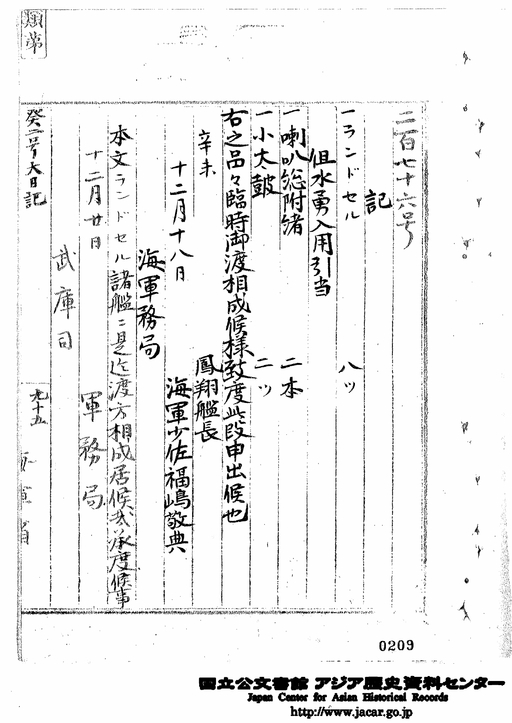 二百七十六号
記
一ランドセル 八ツ
但水勇入用引当
一喇叭総附緒 二本
一小太鼓 二ツ
右之品々臨時御渡相成候様致度此段申出候也
辛未
十二月十八日
鳳翔艦長
海軍少佐福嶋敬典
海軍務局
本文ランドセル諸艦ニ是迄渡方相成居候哉承度候事
十二月廿日
軍務局
武庫司
癸二号大日記
九十五
0209
国立公文書館 アジア歴史資料センター
Japan Center for Asian Historical Records
http://www.jacar.go.jp